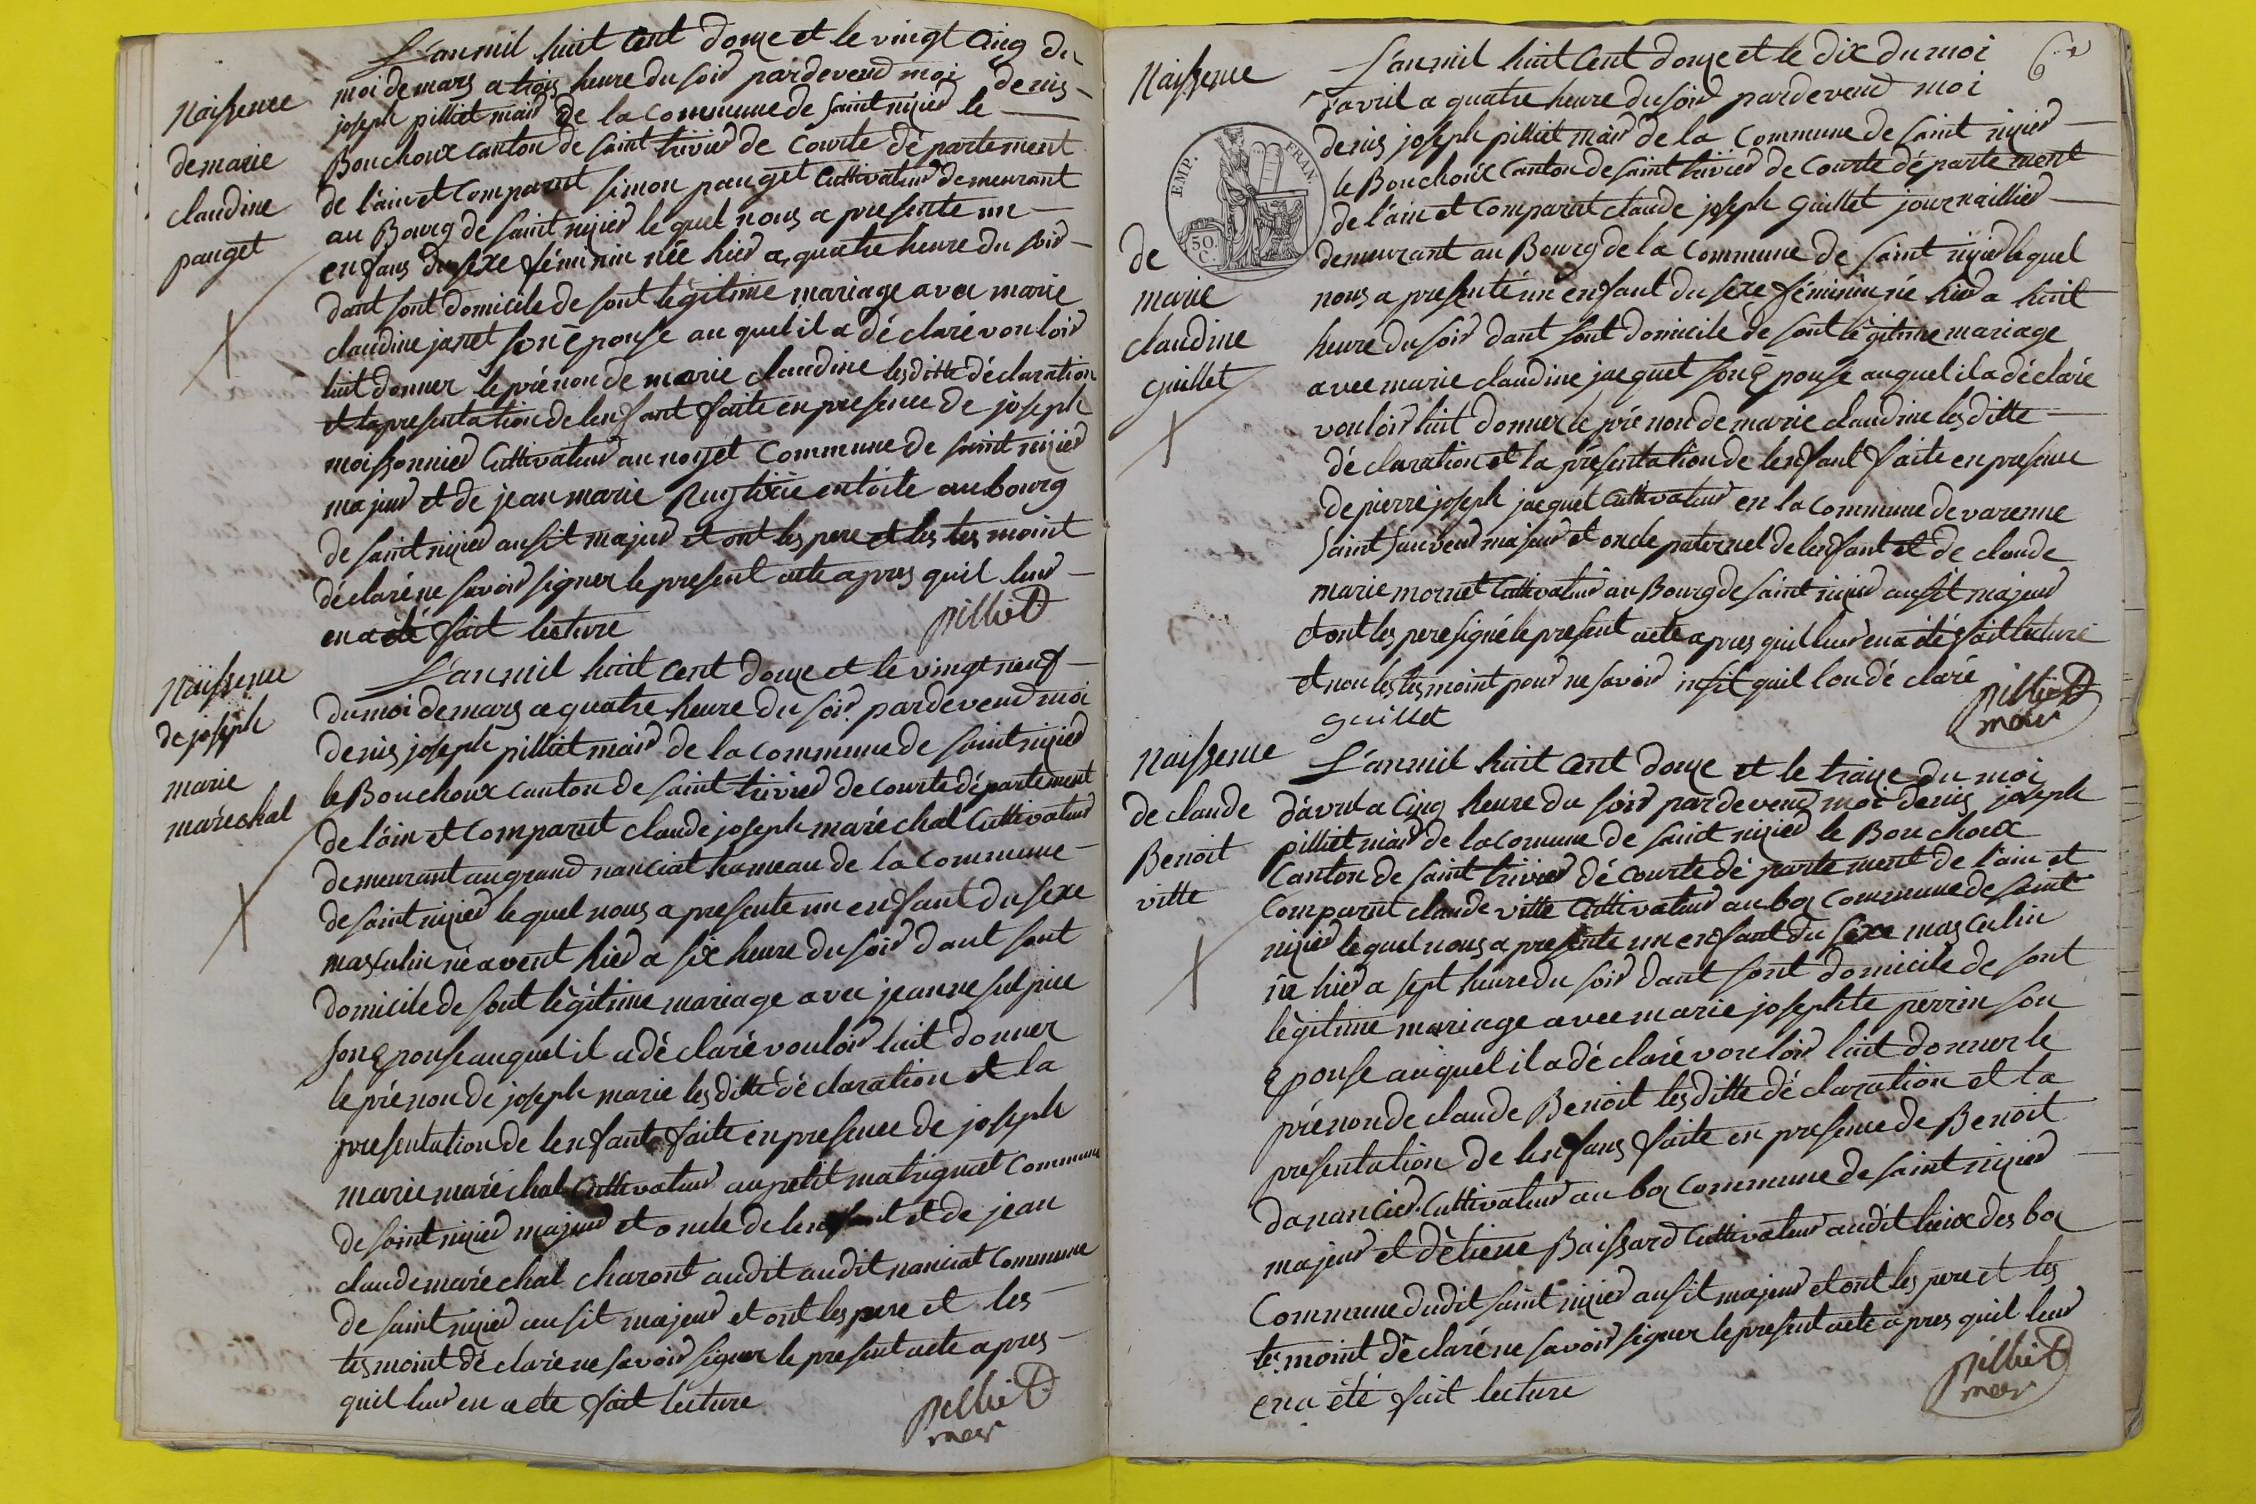 Naissence
de marie
claudine
pauget
L'an mil huit Cent douze et le vingt Cinq du
moi de mars a trois heure du soir pardevend moi denis
joseph pilliet mair de la Commune de saint nizier le
Bouchoux canton de saint trivier de Courte département
de l'ain et Comparut simon pauget Cultivateur demeurant
au Bourg de saint nizier le quel nous a presente un
enfans du sexe féminin née hier a quatre heure du soir
dant sont domicile de sont légitime mariage avec marie
claudine janet son Epouse au quel il a déclaré vouloir
luit donner le prénon de marie claudine les ditte déclaration
et la presentation de lenfant faite en presence de joseph
moissonnier Cultivateur au noyet Commune de saint nizier
majeur et de jean marie entoite au bourg
de saint nizier ausit majeur et ont les pere et les tes moint
déclaré ne savoir signer le present acte apres quil leur
en a été fait lecture
pilliet
Naissence
de joseph
marie
maréchal
L'an mil huit Cent douze et le vingt neuf
du moi de mars a quatre heure du soir pardevend moi
denis joseph pilliet mair de la commune de saint nizier
le Bouchoux canton de saint trivier de courte département
de l'ain et Comparut claude joseph maréchal Cultivateur
demeurant au grand nanciat hameau de la Commune
de saint nizier le quel nous a presente un enfant du sexe
masculin né avent hier a six heure du soir dant sont
domicile de sont légitime mariage avec jeanne sulpice
son Epouse au quel il a déclaré vouloir luit donner
le prénon de joseph marie les ditte déclaration et la
presentation de lenfant faite en presence de joseph
marie maréchal Cultivateur au petit matrignat Commune
de saint nizier majeur et oncle de lenfant et de jean
claude maréchal charont audit audit nanciat Commune
de saint nizier ausit majeur et ont les pere et les
tes moint déclaré ne savoir signer le present acte apres
quil leur en a ete fait lecture
pilliet
maer
Naissence
de
marie
claudine
guillet
EMP. FRAN.
50.
C.
L'an mil huit Cent douze et le dix du moi
d'avril a quatre heure du soir pardevend moi
denis joseph pilliet mair de la Commune de saint nizier
le Bouchoux Canton de saint trivier de Courte département
de l'ain et Comparut claude joseph guillet journaillier
demeurant au Bourg de la Commune de saint nizier le quel
nous a presenté un enfant du sexe féminin né hier a huit
heure du soir dant sont domicile de sont légitime mariage
avec marie claudine jacquet son Epouse au quel il a déclaré
vouloir luit donner le prénon de marie claudine les ditte
déclaration et la présentation de lenfant faite en presence
de pierre joseph jacquet Cultivateur en la commune de varenne
saint sauveur majeur et oncle paternel de lenfant et de claude
marie mornet Cultivateur au Bourg de saint nizier ausit majeur
et ont les pere signé le present acte apres quil leur en a été fait lecture
et non les tes moint pour ne savoir insit quil lon déclaré
guillet
pilliet
maer
Naissence
de claude
Benoit
vitte
L'an mil huit Cent douze et le traize du moi
d'avril a Cinq heure du soir pardevend moi denis joseph
pilliet mair de la comune de saint nizier le Bouchoux
Canton de saint trivier dé Courte département de l'ain et
Comparut claude vitte Cultivateur au boz Commune de saint
nizier le quel nous a presente un enfant du sexe masculin
né hier a sept heure du soir dant sont domicile de sont
légitime mariage avec marie josephte perrin son
Epouse au quel il a déclaré vouloir luit donner le
prénon de claude Benoit les ditte déclaration et la
presentation de lenfans faite en presence de Benoit
danancier Cultivateur au boz Commune de saint nizier
majeur et d'étiene Baissard Cultivateur audit lieux des boz
Commune dudit saint nizier ausit majeur et ont les pere et les
tes moint déclaré ne savoir signer le present acte apres quil leur
en a été fait lecture
pilliet
maer